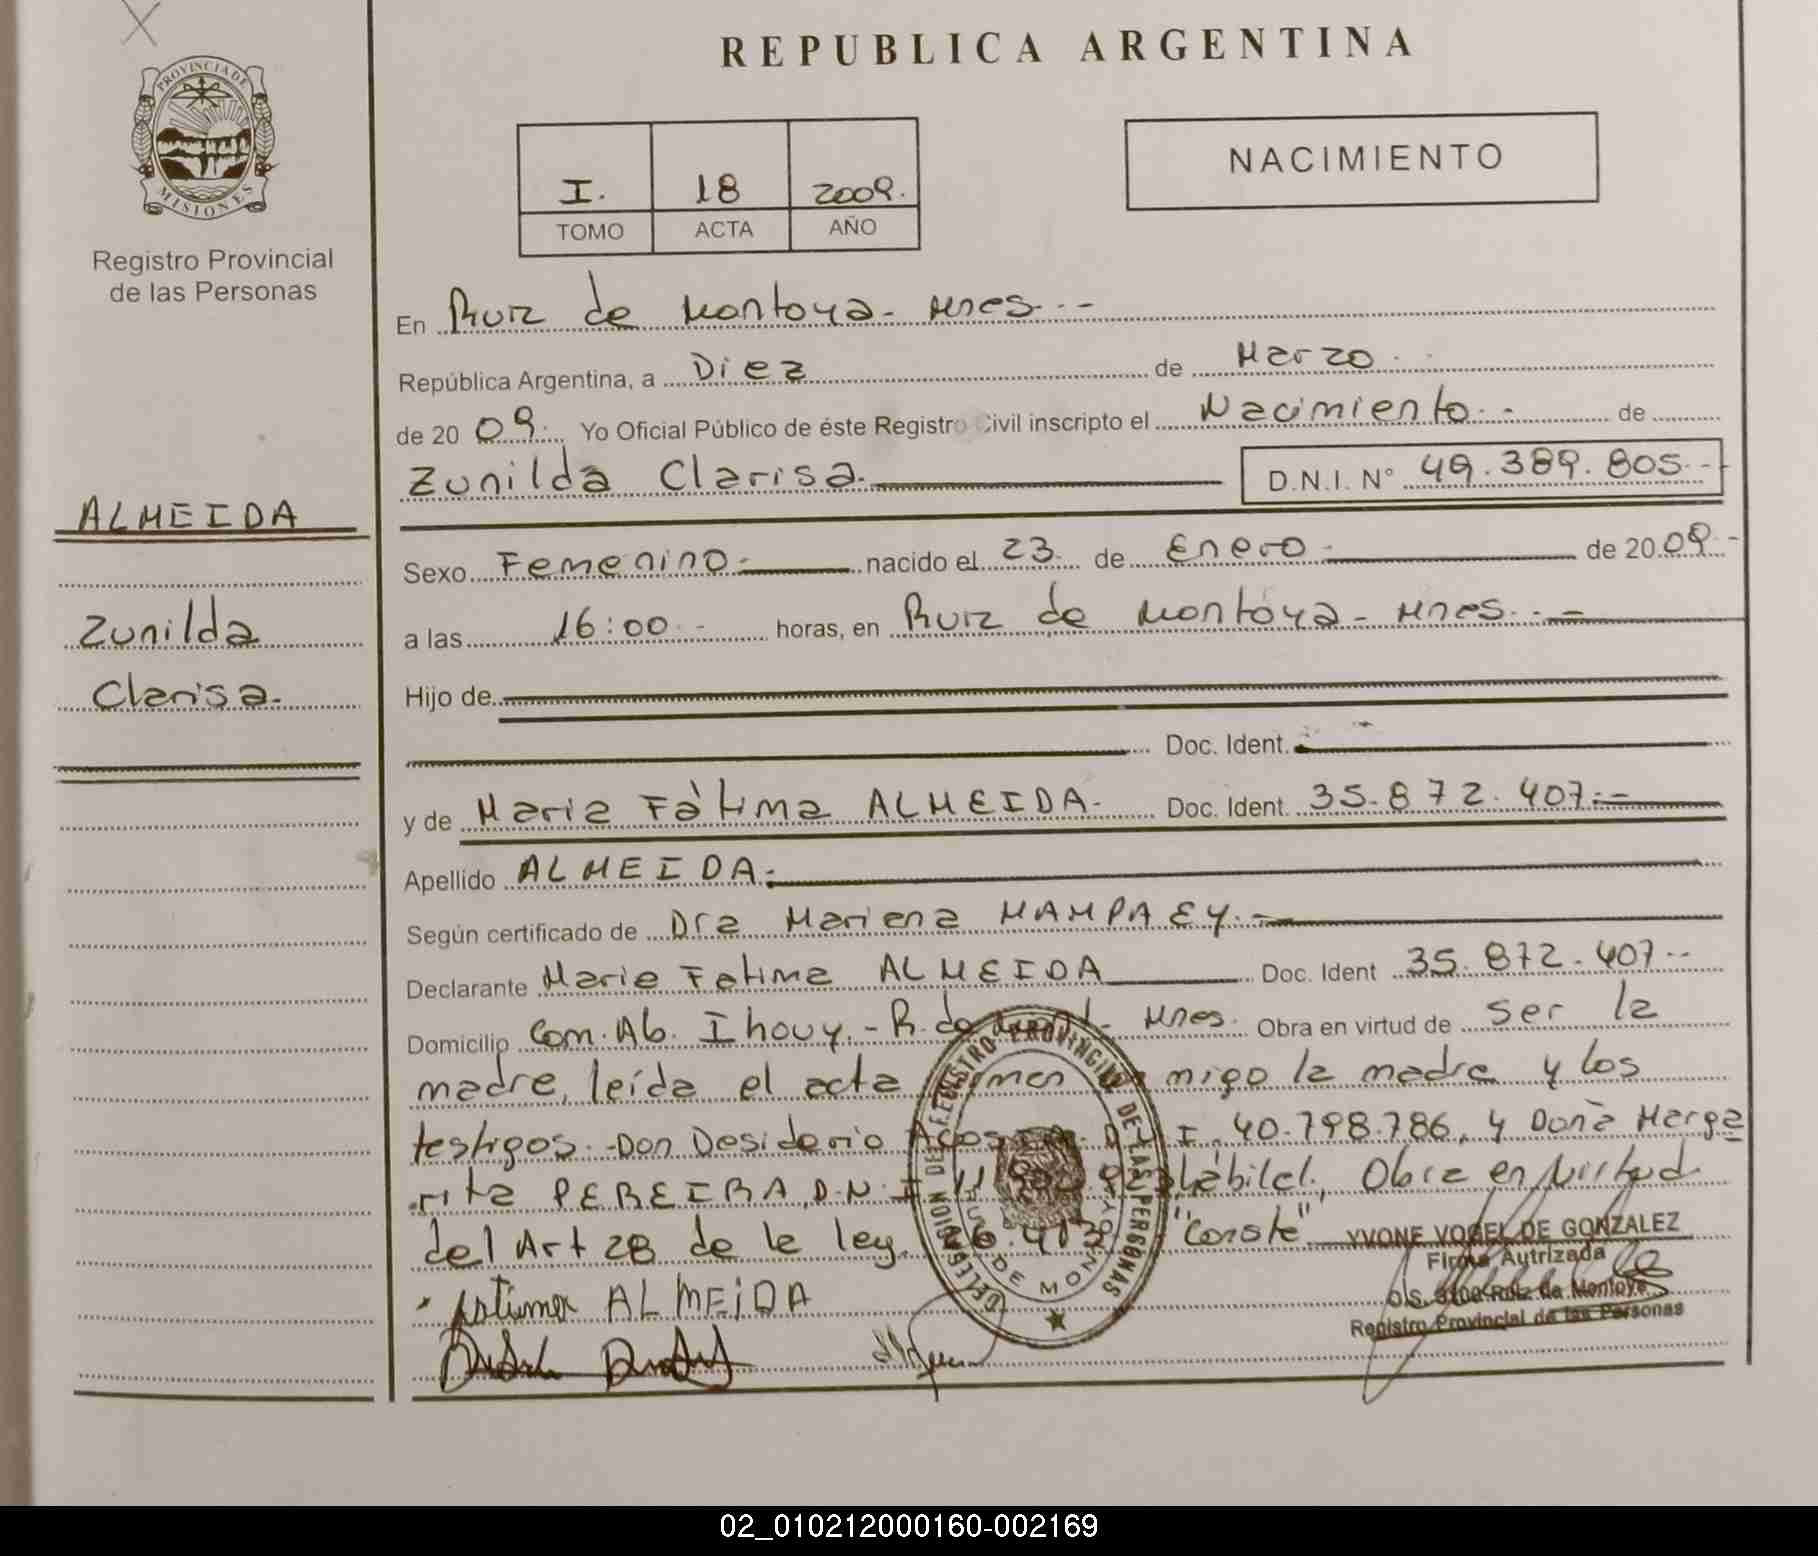 REPUBLICA ARGENTINA
PROVINCIA DE
MISIONES
Registro Provincial
de las Personas
I. 18 2009.
TOMO ACTA AÑO
NACIMIENTO
En Ruiz de Montoya - Mnes. - -
República Argentina, a Diez de Marzo.
de 20 09. Yo Oficial Público de éste Registro Civil inscripto el Nacimiento. - de
Zunilda Clarisa. D.N.I. N° 49.389.805. -
ALMEIDA
Zunilda
Clarisa.
Sexo Femenino. nacido el 23. de Enero - de 20 09. -
a las 16:00 - horas, en Ruiz de Montoya - Mnes. - -
Hijo de
Doc. Ident.
y de Maria Fàtima ALMEIDA - Doc. Ident. 35.872.407. -
Apellido ALMEIDA.
Según certificado de Dra Mariena MAMPAEY. -
Declarante Maria Fatima ALMEIDA Doc. Ident 35.872.407 - -
Domicilio Com. Ab. I hovy. - R. de Mnes. Obra en virtud de ser la
madre, leída el acta migo la madre y los
testigos. - Don Desiderio 40.798.786, y Doña Marga
rita PEREIRA, D.N.I 11 Obra en virtud
del Art 28 de la ley. 26.413 "Conste"
YVONE VOGEL DE GONZALEZ
Firma Autrizada
Ruiz de Montoya
Registro Provincial de las Personas
DELEGACION DEL REGISTRO PROVINCIAL DE LAS PERSONAS
RUIZ DE MONTOYA
ALMEiDA
02_010212000160-002169